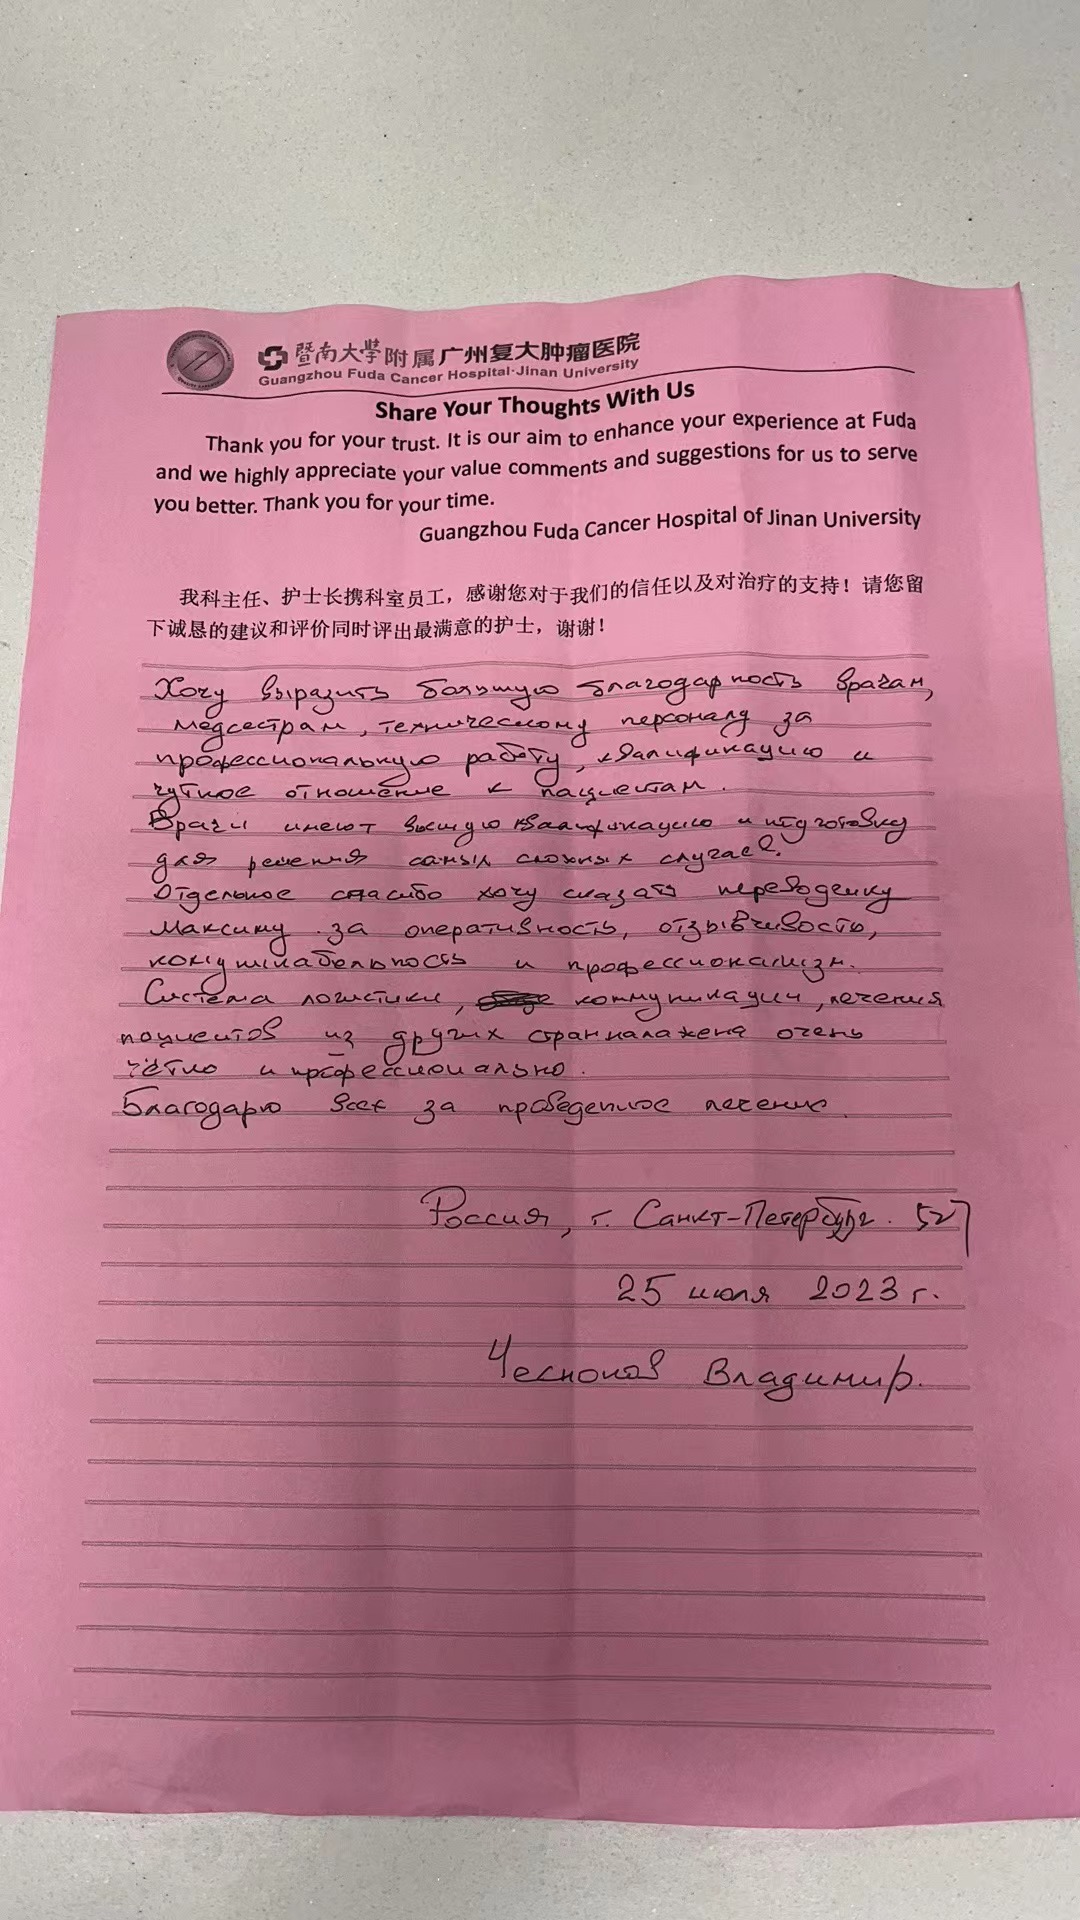 暨南大学附属广州复大肿瘤医院
Guangzhou Fuda Cancer Hospital·Jinan University
Share Your Thoughts With Us
Thank you for your trust. It is our aim to enhance your experience at Fuda
and we highly appreciate your value comments and suggestions for us to serve
you better. Thank you for your time.
Guangzhou Fuda Cancer Hospital of Jinan University
我科主任、护士长携科室员工，感谢您对于我们的信任以及对治疗的支持！请您留
下诚恳的建议和评价同时评出最满意的护士，谢谢！
Хочу выразить большую благодарность врачам,
медсестрам, техническому персоналу за
профессиональную работу, квалификацию и
чуткое отношение к пациентам.
Врачи имеют высшую квалификацию и подготовку
для решения самых сложных случаев.
Отдельное спасибо хочу сказать переводчику
Максиму за оперативность, отзывчивость,
и профессионализм.
Система логистики, коммуникации, лечения
пациентов из других стран налажена очень
чётко и профессионально.
Благодарю всех за проведенное лечение.
Россия, г. Санкт-Петербург.
25 июля 2023 г.
Владимир.